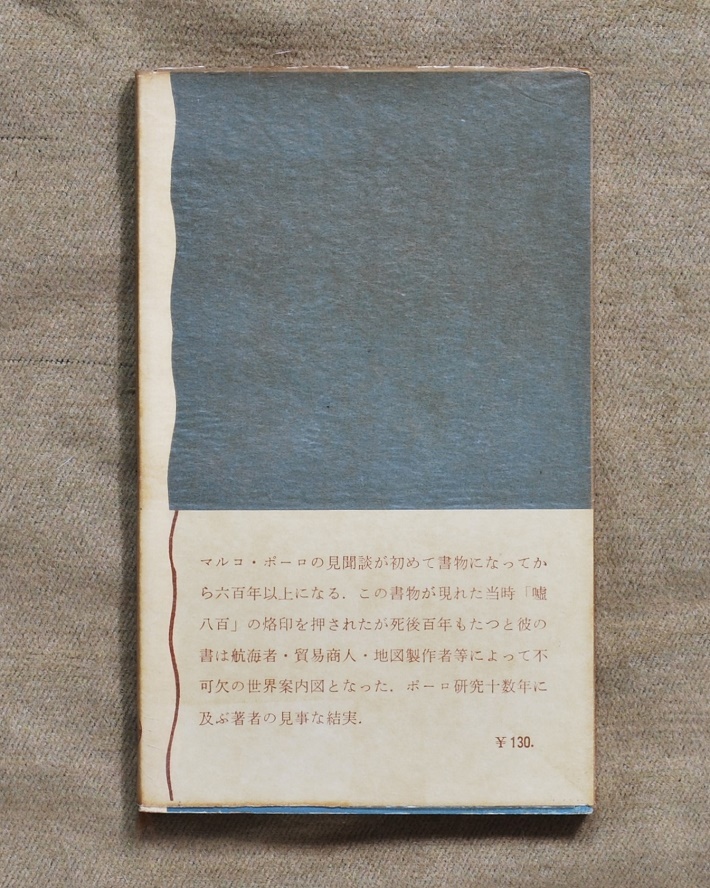 マルコ・ポーロの見聞談が初めて書物になってか
ら六百年以上になる．この書物が現れた当時「嘘
八百」の烙印を押されたが死後百年もたつと彼の
書は航海者・貿易商人・地図製作者等によって不
可欠の世界案内図となった．ポーロ研究十数年に
及ぶ著者の見事な結実．
¥130.